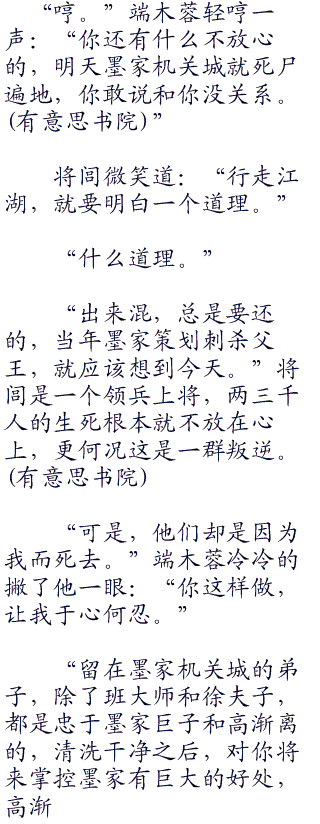 “哼。”端木蓉轻哼一
声：“你还有什么不放心
的，明天墨家机关城就死尸
遍地，你敢说和你没关系。
(有意思书院)”
将闾微笑道：“行走江
湖，就要明白一个道理。”
“什么道理。”
“出来混，总是要还
的，当年墨家策划刺杀父
王，就应该想到今天。”将
闾是一个领兵上将，两三千
人的生死根本就不放在心
上，更何况这是一群叛逆。
(有意思书院)
“可是，他们却是因为
我而死去。”端木蓉冷冷的
撇了他一眼：“你这样做，
让我于心何忍。”
“留在墨家机关城的弟
子，除了班大师和徐夫子，
都是忠于墨家巨子和高渐离
的，清洗干净之后，对你将
来掌控墨家有巨大的好处，
高渐